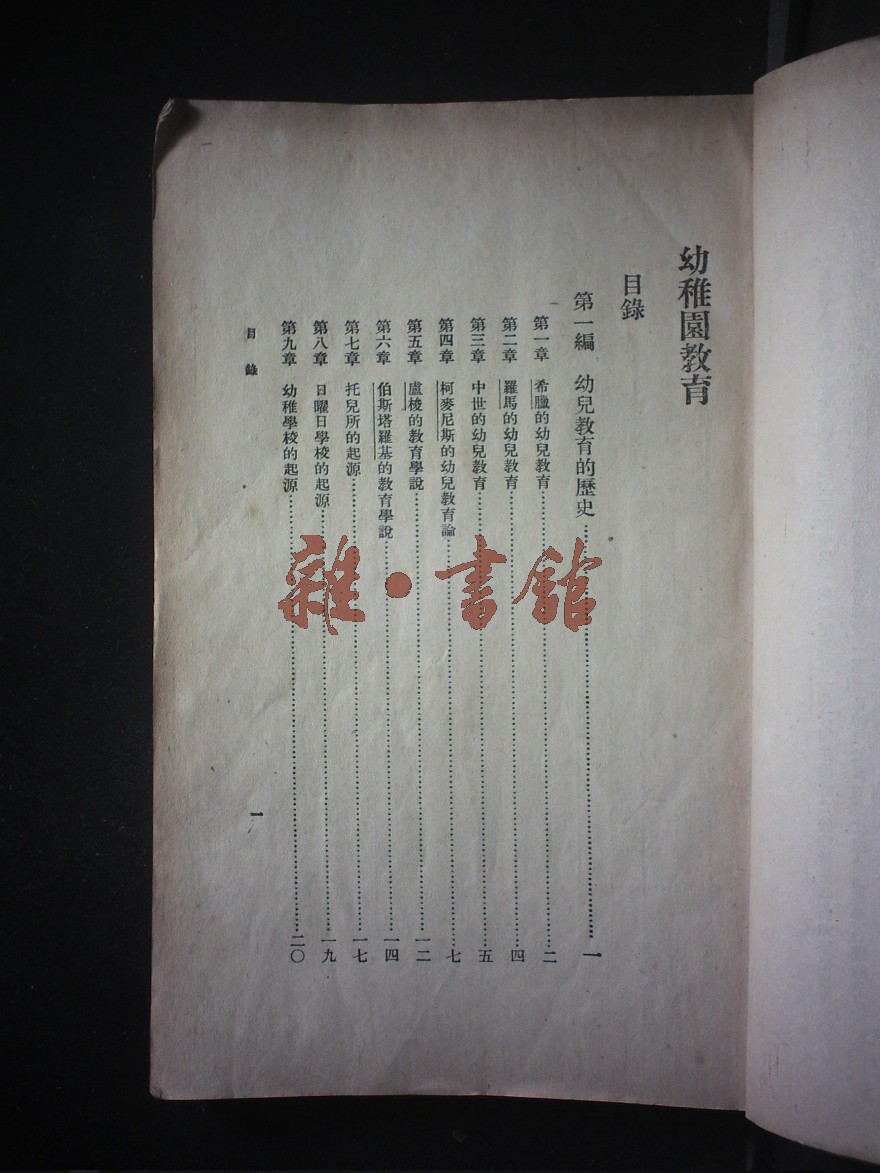 幼稚園教育
目錄
第一編 幼兒教育的歷史……一
第一章 希臘的幼兒教育……二
第二章 羅馬的幼兒教育……四
第三章 中世的幼兒教育……五
第四章 柯麥尼斯的幼兒教育論……七
第五章 盧梭的教育學說……一二
第六章 伯斯塔羅基的教育學說……一四
第七章 托兒所的起源……一七
第八章 日曜日學校的起源……一九
第九章 幼稚學校的起源……二〇
目錄 一
雜·書館